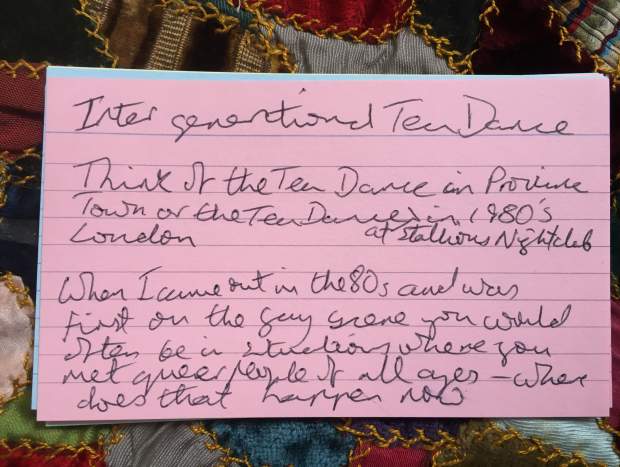 Inter generational Tea Dance
Think of the Tea Dance in Province
Town or the Tea Dances in 1980's
London at Stallions Nightclub
When I came out in the 80s and was
first on the gay scene you would
often be in situations where you
met queer people of all ages – where
does that happen now